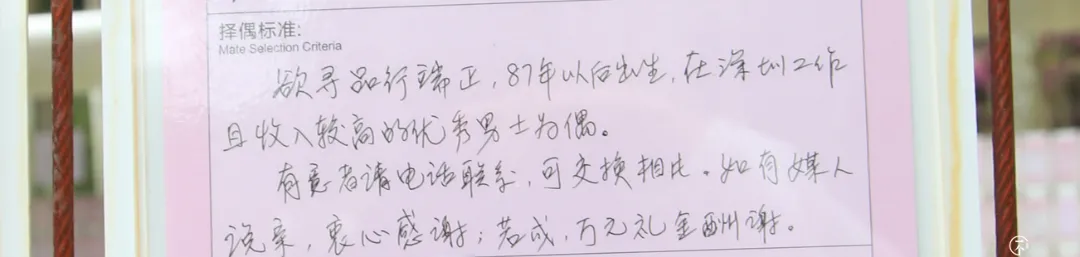 择偶标准:
Mate Selection Criteria
欲寻品行端正，87年以后出生，在深圳工作
且收入较高的优秀男士为偶。
有意者请电话联系，可交换相片。如有媒人
说亲，衷心感谢；若成，万元礼金酬谢。